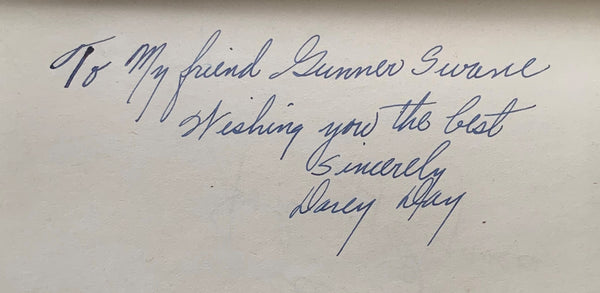 To My friend Gunner Swane
Wishing you the best
Sincerely
Darey Day